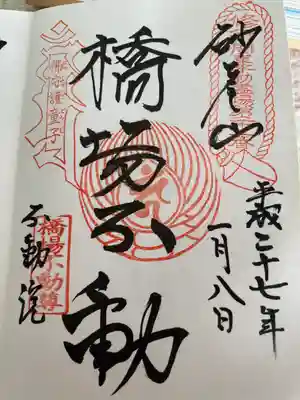 砂尾山
平成二十七年
一月八日
橋場不動
不動院
橋場不動尊